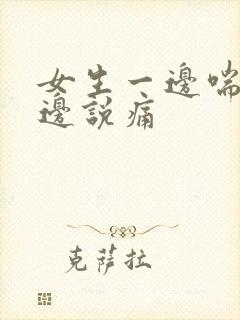 女生一邊喘
邊說痛
克薩拉